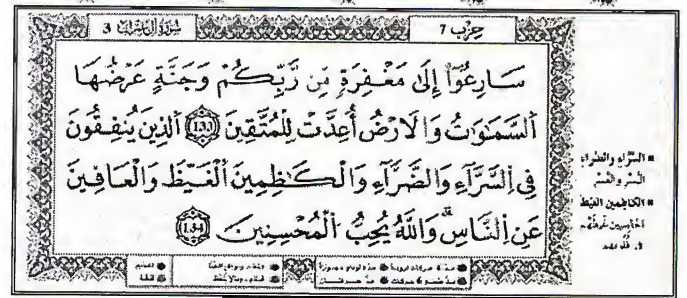 سُورَةُ آلِ عِمْرَانَ 3
حِزْب 7
سَارِعُوٓا۟ إِلَىٰ مَغْفِرَةٍ مِّن رَّبِّكُمْ وَجَنَّةٍ عَرْضُهَا
اَ۬لسَّمَٰوَٰتُ وَالَارْضُ أُعِدَّتْ لِلْمُتَّقِينَ 133 اَ۬لذِينَ يُنفِقُونَ
فِي اِ۬لسَّرَّآءِ وَالضَّرَّآءِ وَالْكَٰظِمِينَ اَ۬لْغَيْظَ وَالْعَافِينَ
عَنِ اِ۬لنَّاسِۖ وَاللَّهُ يُحِبُّ اُ۬لْمُحْسِنِينَ 134
السَّرَّاءِ والضَّرَّاءِ
اليُسْرِ والعُسْرِ
الكاظِمِينَ الغَيْظَ
الحابِسِينَ غَيْظَهُمْ
في قُلُوبِهِم